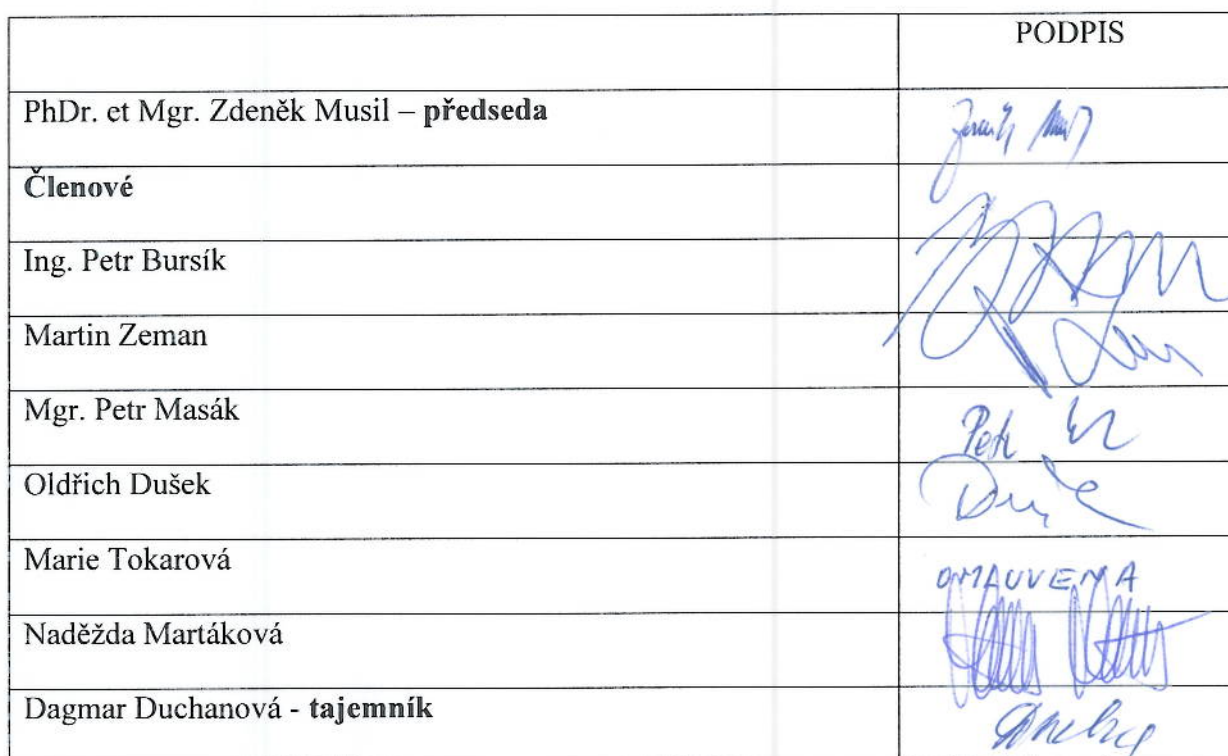 PODPIS
PhDr. et Mgr. Zdeněk Musil – předseda
Členové
Ing. Petr Bursík
Martin Zeman
Mgr. Petr Masák
Petr
Oldřich Dušek
Marie Tokarová
OMLUVENA
Naděžda Martáková
Dagmar Duchanová - tajemník